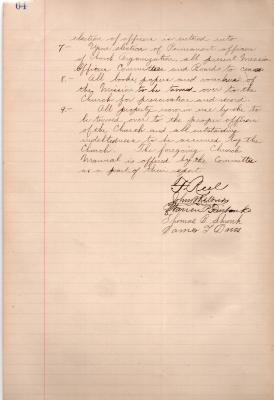 64
election of officers is entered into
7 - Upon election of Permanent officers
of Church Organization, all present Mission
Officers Committees and Boards to cease
8. - All books, papers and vouchers of
the Mission to be turned over to the
Church for preservation and record.
9 - All property now in use by to be
to be turned over to the proper officers
of the Church and all outstanding
indebtedness to be assumed by the
Church. The foregoing Church
Manual is offered by the Committee
as a part of their report
Reel
John
Warren Fairbanks
Thomas D.
James T Davis